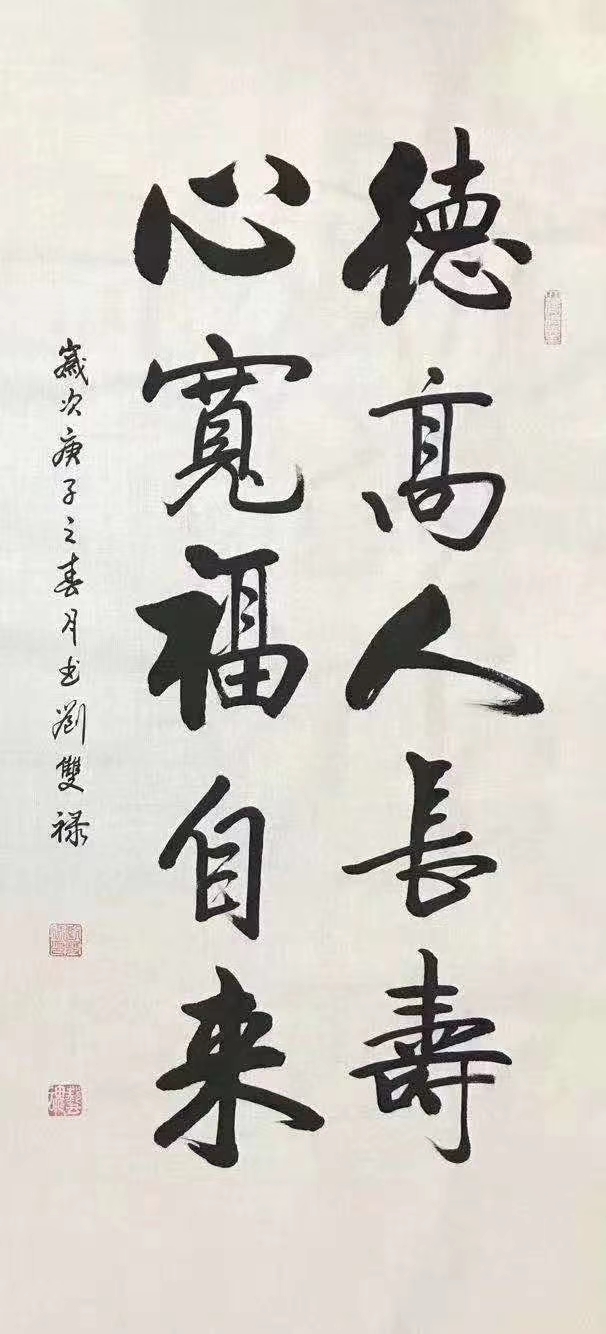 德高人長壽
心寬福自来
歲次庚子之春月书劉雙禄